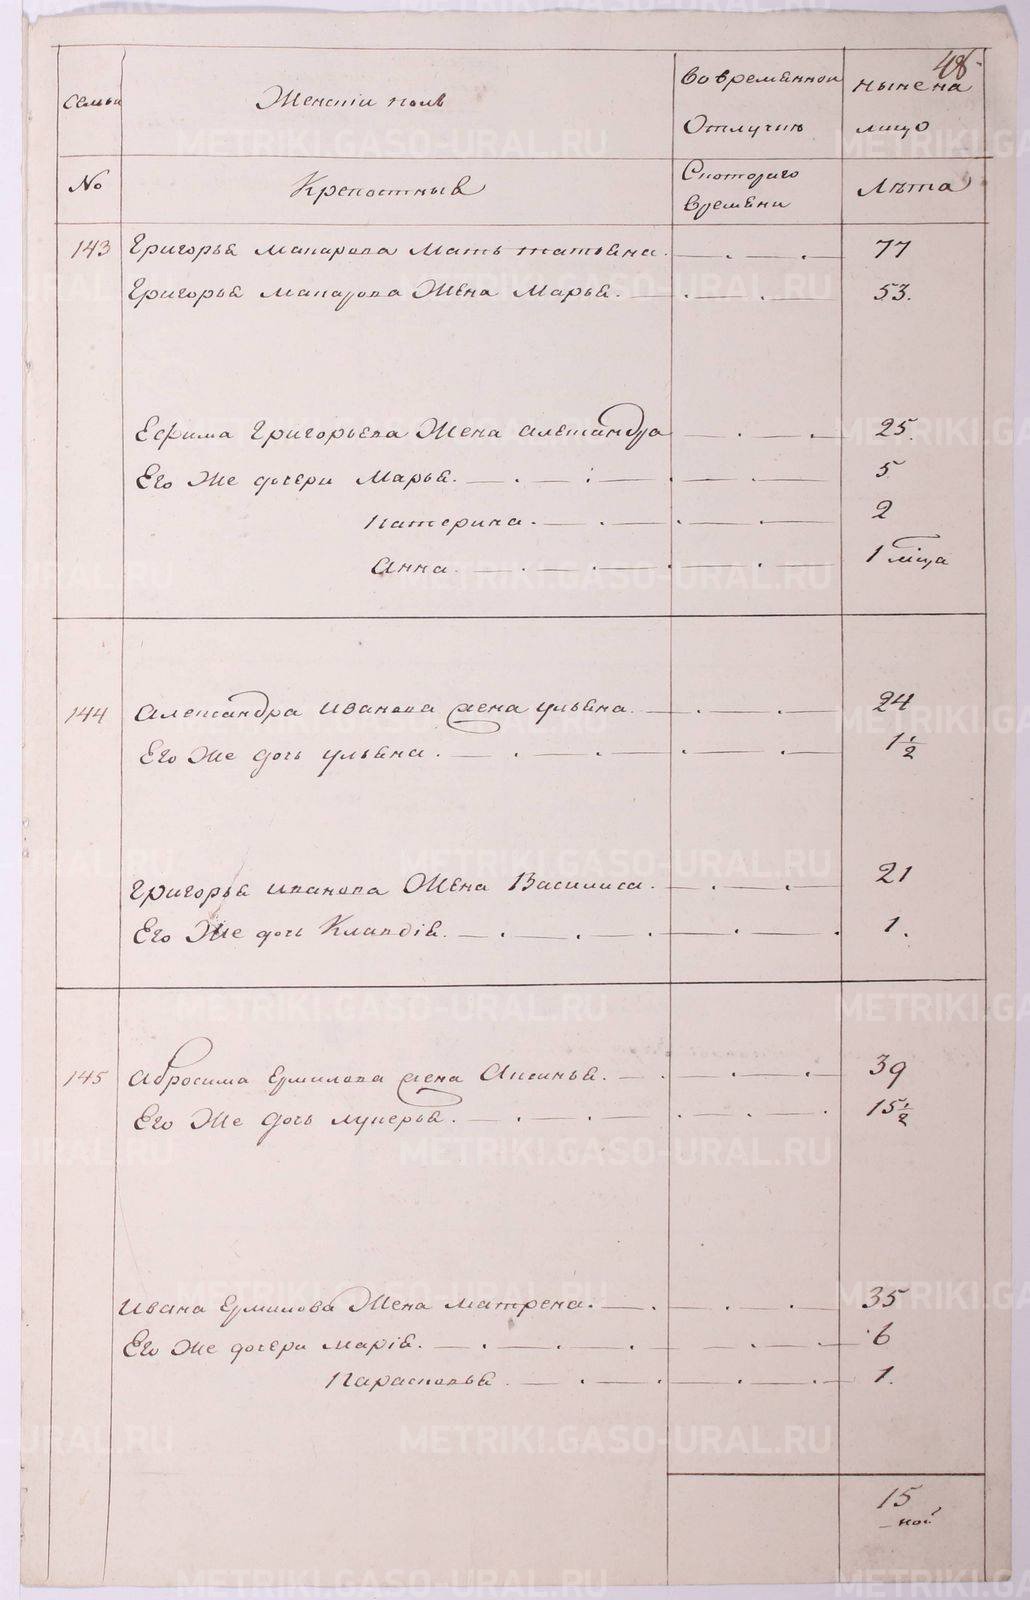 48
Семьи
Женскiй полъ
Во временной
Отлучкѣ
Ныне на
лицо
No
Крепостныѣ
Скоторого
времѣни
Лѣта
143 Григорья Макарова Мать татьяна. 77
Григорья Макарова Жена Марья. 53.
Ефима Григорьева Жена александра 25.
Его Же дочери Марья. 5
Катерина. 2
Анна. 1 мца
144 александра Иванова жена ульяна. 24
Его Же дочь ульяна. 1 1/2
Григорья иванова Жена Василиса. 21
Его Же дочь Клавдiя. 1.
145 Абросима Ермилова жена Аксинья. 39
Его Же дочь лукерья. 15 1/2
Ивана Ермилова Жена матрена. 35
Его Же дочери марiя. 6
Парасковья. 1.
15
METRIKI.GASO-URAL.RU